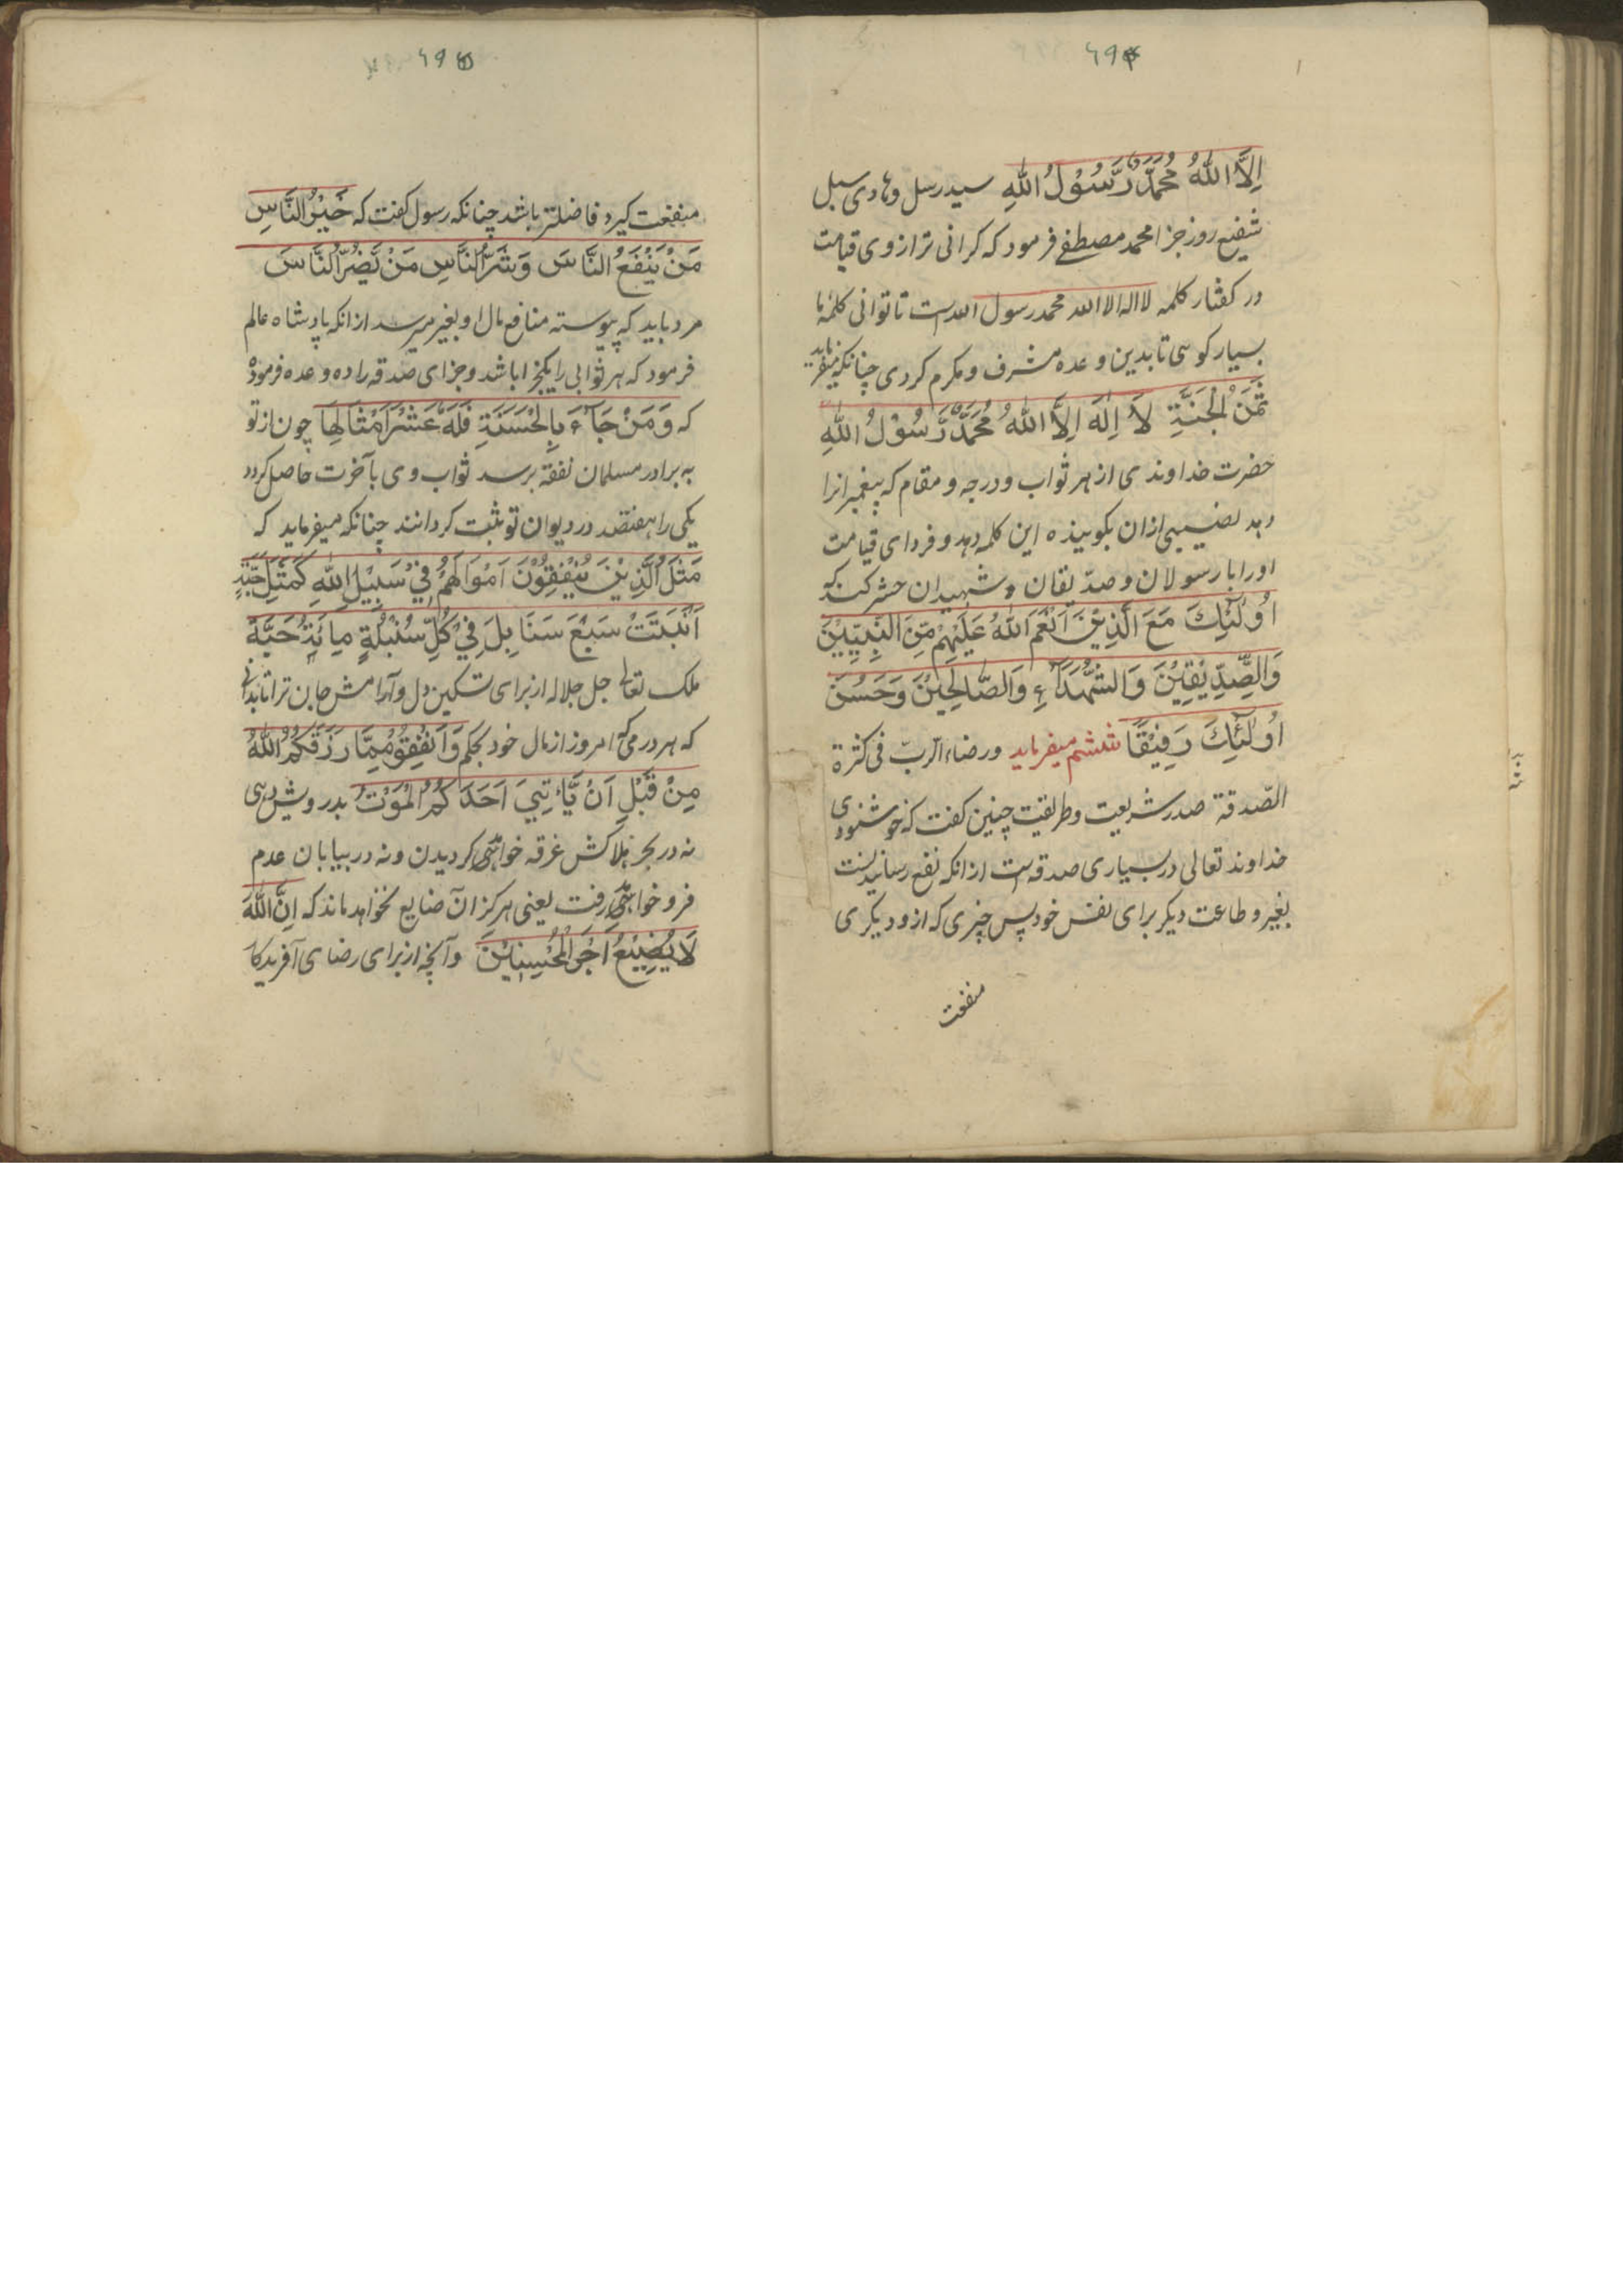 ۶۹۴
اِلَّا اللهُ مُحَمَّدٌ رَّسُوْلُ اللهِ سید رسل و هادی سبل
شفیع روز جزا محمد مصطفے فرمود که کرانی ترازوی قیامت
در کفتار کلمه لا اله الا الله محمد رسول الله است تا توانی کلمه را
بسیار کوی تا بدین وعده مشرف و مکرم کردی چنانکه میفرماید
ثَمَنُ الْجَنَّةِ لَا اِلٰهَ اِلَّا اللهُ مُحَمَّدٌ رَّسُوْلُ اللهِ
حضرت خداوندی از هر ثواب و درجه و مقام که پیغمبرانرا
دهد نصیبی ازان بکوینده این کلمه دهد و فردای قیامت
اورا با رسولان و صدّیقان و شهیدان حشر کند که
اُولٰئِكَ مَعَ الَّذِیْنَ اَنْعَمَ اللهُ عَلَیْهِمْ مِّنَ النَّبِیِّیْنَ
وَالصِّدِّیْقِیْنَ وَالشُّهَدَاءِ وَالصَّالِحِیْنَ وَحَسُنَ
اُولٰئِكَ رَفِیْقًا ششم میفرماید ورضاء الربّ فی کثرة
الصّدقة صدر شریعت و طریقت چنین کفت که خوشنودی
خداوند تعالی در بسیاری صدقه است ازانکه نفع رسانیدنست
بغیر و طاعت دیکر برای نفس خود پس چیزی که ازو دیکری
منفعت
۶۹۵
منفعت کیرد فاضلتر باشد چنانکه رسول کفت که خَیْرُ النَّاسِ
مَنْ یَنْفَعُ النَّاسَ وَشَرُّ النَّاسِ مَنْ یَّضُرُّ النَّاسَ
مرد باید که پیوسته منافع مال او بغیر میرسد ازانکه پادشاه عالم
فرمود که هر ثوابی را یکجزا باشد و جزای صدقه را ده وعده فرمود
که وَمَنْ جَاءَ بِالْحَسَنَةِ فَلَهُ عَشْرُ اَمْثَالِهَا چون از تو
به برادر مسلمان نفقة برسد ثواب وی بآخرت حاصل کردد
یکی را هفتصد در دیوان تو ثبت کردانند چنانکه میفرماید که
مَثَلُ الَّذِیْنَ یُنْفِقُوْنَ اَمْوَالَهُمْ فِیْ سَبِیْلِ اللهِ کَمَثَلِ حَبَّةٍ
اَنْبَتَتْ سَبْعَ سَنَابِلَ فِیْ کُلِّ سُنْبُلَةٍ مِائَةُ حَبَّةٍ
ملک تعالی جل جلاله از برای تسکین دل و آرامش جان ترا تا بدانی
که هر درمی که امروز از مال خود بحکم وَاَنْفِقُوْا مِمَّا رَزَقَکُمُ اللهُ
مِنْ قَبْلِ اَنْ یَّأْتِیَ اَحَدَکُمُ الْمَوْتُ بدرویش دهی
نه در بحر هلاکش غرقه خواهی کردیدن و نه در بیابان عدم
فرو خواهی رفت یعنی هرکز آن ضایع نخواهد ماند که اِنَّ اللهَ
لَا یُضِیْعُ اَجْرَ الْمُحْسِنِیْنَ و آنچه از برای رضای آفریدکار